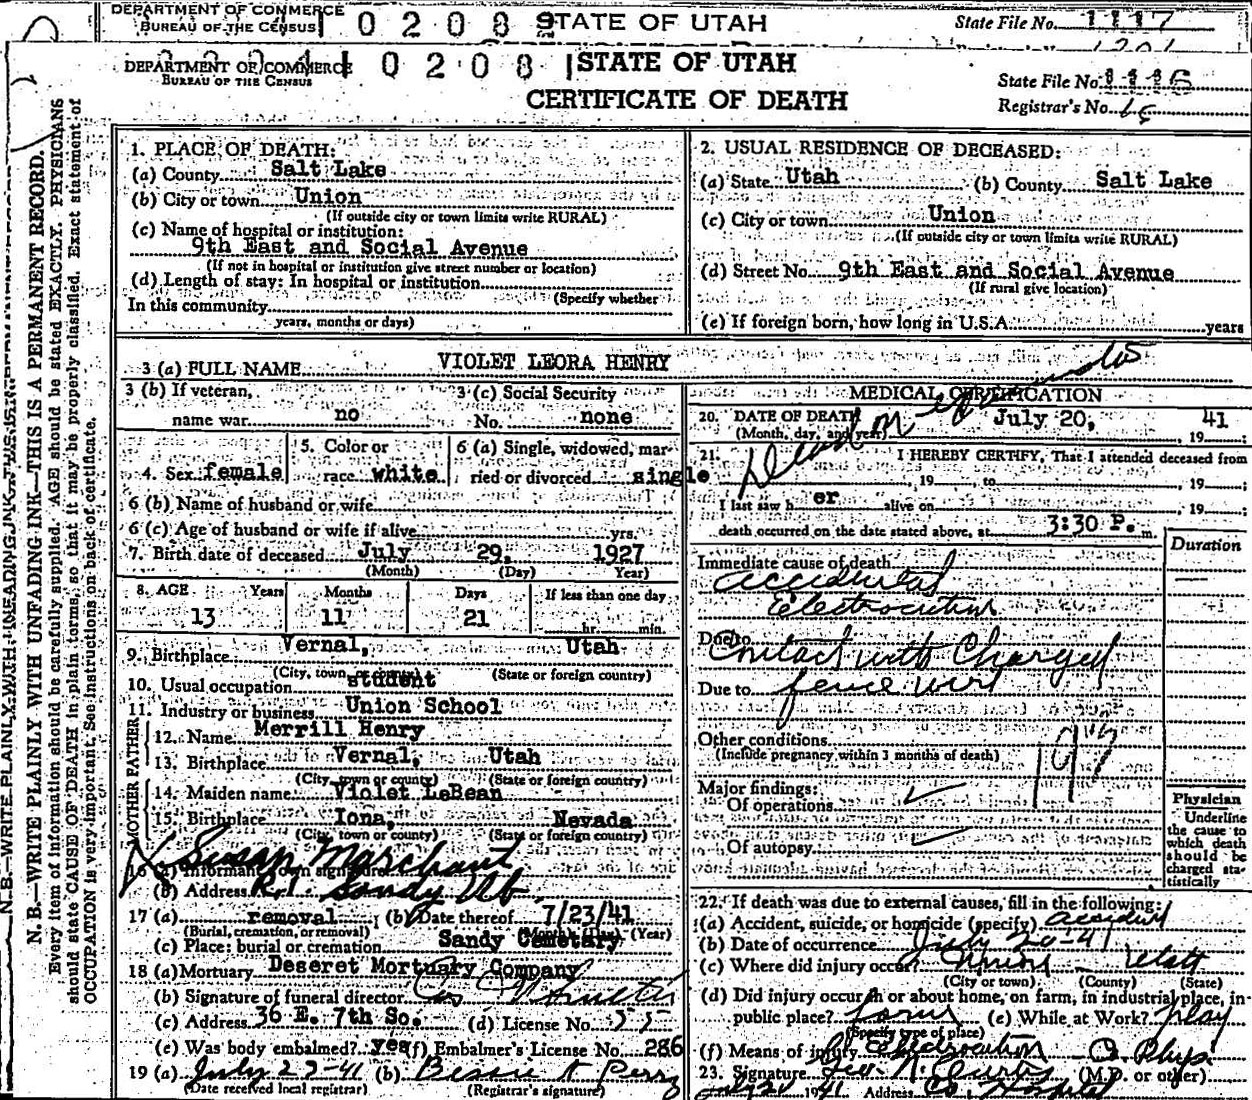 DEPARTMENT OF COMMERCE
BUREAU OF THE CENSUS
0 2 0 8 9
STATE OF UTAH
State File No. 1117
DEPARTMENT OF COMMERCE
BUREAU OF THE CENSUS
0 2 0 8
STATE OF UTAH
CERTIFICATE OF DEATH
State File No. 1116
Registrar's No.
N. B.—WRITE PLAINLY WITH UNFADING INK—THIS IS A PERMANENT RECORD.
Every item of information should be carefully supplied. AGE should be stated EXACTLY. PHYSICIANS
should state CAUSE OF DEATH in plain terms, so that it may be properly classified. Exact statement of
OCCUPATION is very important. See instructions on back of certificate.
1. PLACE OF DEATH:
(a) County Salt Lake
(b) City or town Union
(If outside city or town limits write RURAL)
(c) Name of hospital or institution:
9th East and Social Avenue
(If not in hospital or institution give street number or location)
(d) Length of stay: In hospital or institution
(Specify whether
In this community
years, months or days)
2. USUAL RESIDENCE OF DECEASED:
(a) State Utah (b) County Salt Lake
(c) City or town Union
(If outside city or town limits write RURAL)
(d) Street No. 9th East and Social Avenue
(If rural give location)
(e) If foreign born, how long in U.S.A. years
3 (a) FULL NAME VIOLET LEORA HENRY
3 (b) If veteran,
name war no
3 (c) Social Security
No. none
4. Sex female
5. Color or
race white
6 (a) Single, widowed, mar-
ried or divorced single
6 (b) Name of husband or wife
6 (c) Age of husband or wife if alive yrs.
7. Birth date of deceased July 29, 1927
(Month) (Day) Year)
8. AGE Years Months Days If less than one day
13 11 21 hr. min.
9. Birthplace Vernal, Utah
(City, town or county) (State or foreign country)
10. Usual occupation student
11. Industry or business Union School
FATHER
12. Name Merrill Henry
13. Birthplace Vernal, Utah
(City, town or county) (State or foreign country)
MOTHER
14. Maiden name Violet LeBean
15. Birthplace Iona, Nevada
(City, town or county) (State or foreign country)
16 (a) Informant's own signature Susan Marchant
(b) Address R.1. Sandy Ut.
17 (a) removal (b) Date thereof 7/23/41
(Burial, cremation, or removal) (Month) (Day) (Year)
(c) Place: burial or cremation Sandy Cemetary
18 (a) Mortuary Deseret Mortuary Company
(b) Signature of funeral director
(c) Address 36 E. 7th So. (d) License No. 55
(e) Was body embalmed? yes (f) Embalmer's License No. 286
19 (a) July 23-41 (b) Bessie A Perry
(Date received local registrar) (Registrar's signature)
MEDICAL CERTIFICATION
20. DATE OF DEATH July 20, 1941
(Month, day, and year)
21. I HEREBY CERTIFY, That I attended deceased from
Dead on
, 19 , to , 19 ;
I last saw her alive on , 19 ;
death occurred on the date stated above, at 3:30 P. m.
Duration
Immediate cause of death
accidental
Electrocution
Due to Contact with Charged
Due to fence wire
Other conditions
(Include pregnancy within 3 months of death)
Major findings:
Of operations
Of autopsy
Physician
Underline
the cause to
which death
should be
charged sta-
tistically
22. If death was due to external causes, fill in the following:
(a) Accident, suicide, or homicide (specify) accident
(b) Date of occurrence July 20-41
(c) Where did injury occur? Union Utah
(City or town) (County) (State)
(d) Did injury occur in or about home, on farm, in industrial place, in
public place? farm (e) While at Work? play
(Specify type of place)
(f) Means of injury Electrocution Co. Phys.
23. Signature Geo. N. Curtis (M.D. or other)
July 20 1941 Address Co. Hospital